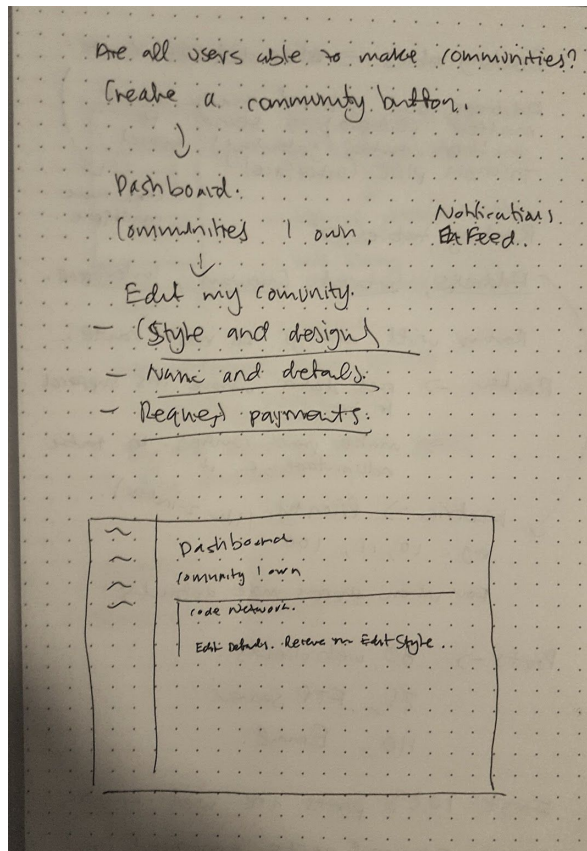 Are all users able to make communities?
Create a community button.
Dashboard.
Communities I own.
Notifications
Feed.
Edit my comunity.
- (Style and design)
- Name and details.
- Request payments.
Dashboard
Community I own
Code Network.
Edit Details. Edit Style.